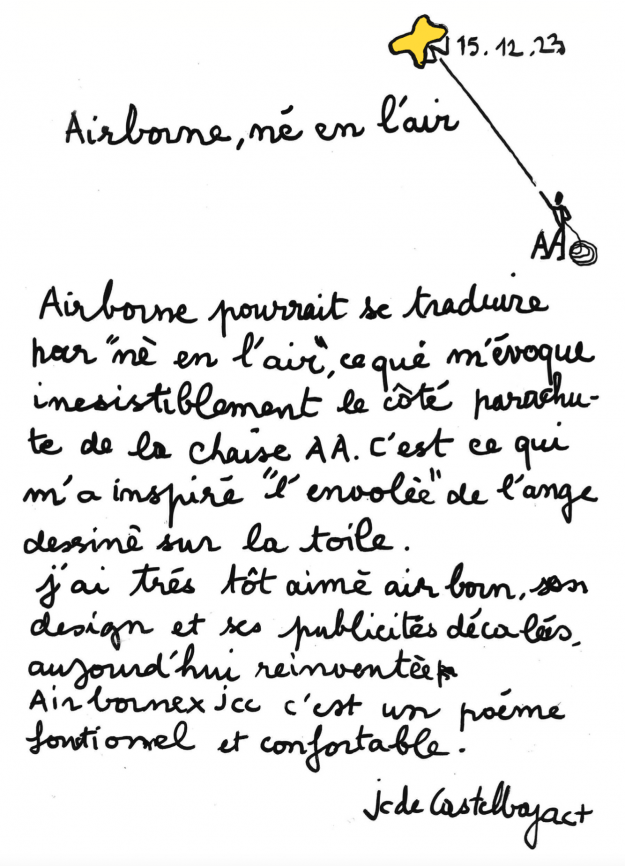 15.12.23
Airborne, né en l'air
AA
Airborne pourrait se traduire
par "nè en l'air", ce qué m'évoque
inesistiblement le côté parachu-
te de la chaise AA. C'est ce qui
m'a inspiré "l'envolèè" de l'ange
dessinè sur la toile.
j'ai trés tôt aimè air born, son
design et ses publicités décalées,
aujourd'hui reinventèe
Airbornexjcc c'est un poéme
fontionnel et confortable.
jc de Castelbajact